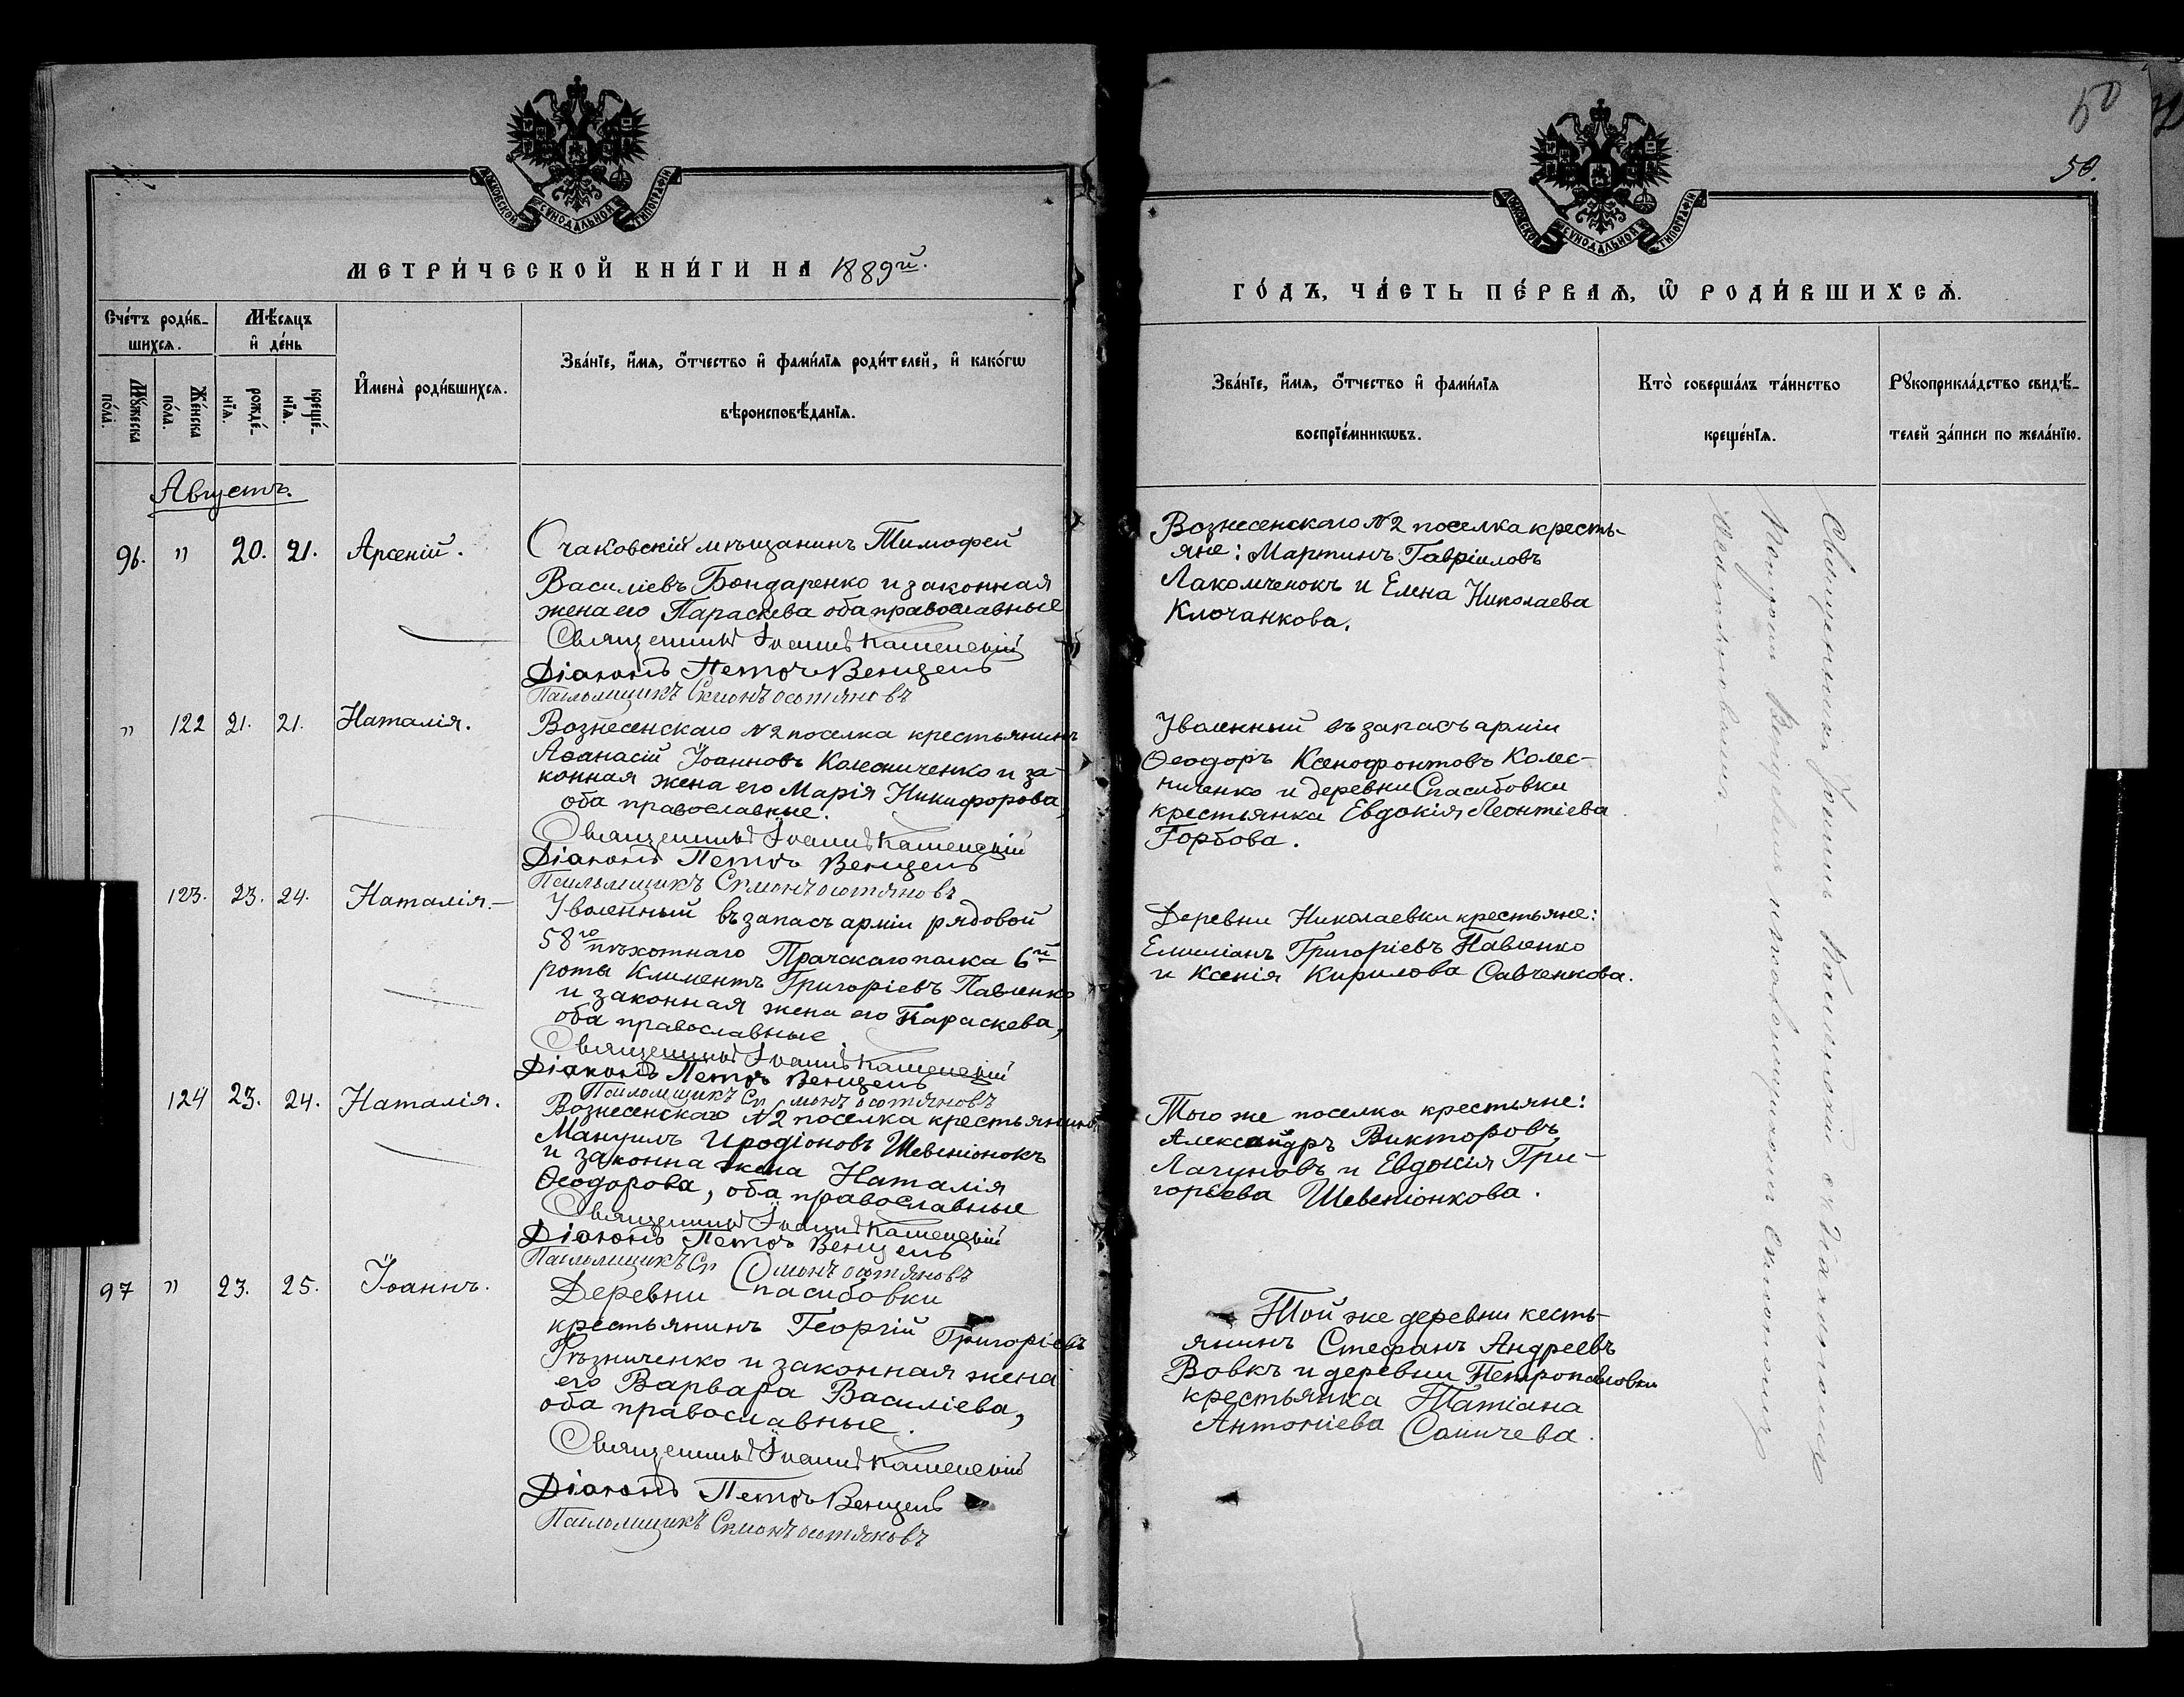 50
50.
МОСКОВСКОЙ СУНОДАЛЬНОЙ ТИПОГРАФІИ
МОСКОВСКОЙ СУНОДАЛЬНОЙ ТИПОГРАФІИ
МЕТРИ́ЧЕСКОЙ КНИ́ГИ НА 1889й.
ГО́ДЪ, ЧА́СТЬ ПЕ́РВАѦ, Ѡ҆ РОДИ́ВШИХСѦ.
Сче́тъ роди́в-
шихсѧ.
Мѣ́сѧцъ
и҆ де́нь
Мꙋ́жеска
по́ла.
Же́нска
по́ла.
рожде́-
нїѧ.
креще́-
нїѧ.
И҆мена̀ роди́вшихсѧ.
Зва́нїе, и҆́мѧ, о҆́тчество и҆ фами́лїѧ роди́телей, и҆ како́гѡ
вѣроисповѣ́данїѧ.
Зва́нїе, и҆́мѧ, о҆́тчество и҆ фами́лїѧ
воспрїе́мникѡвъ.
Кто̀ соверша́лъ та́инство
креще́нїѧ.
Рꙋкоприкла́дство свидѣ́-
телей за́писи по жела́нїю.
Августъ.
96. " 20. 21. Арсеній.
Очаковскій мѣщанинъ Тимофей
Василіевъ Бондаренко и законная
жена его Параскева оба православные
Священникъ Іоаннъ Каменскій
Діаконъ Петръ Венцель
Псаломщикъ
Вознесенскаго №2 поселка кресть-
яне: Мартинъ Гавріиловъ
Лакомченокъ и Елена Николаева
Клочанкова.
" 122 21. 21. Наталія.
Вознесенскаго №2 поселка крестьянинъ
Аѳанасій Іоанновъ Колесниченко и за-
конная жена его Марія Никифорова,
оба православные.
Священникъ Іоаннъ Каменскій
Діаконъ Петръ Венцель
Псаломщикъ
Уволенный въ запасъ арміи
Ѳеодоръ Ксенофонтовъ Колес-
ниченко и деревни Спасибовки
крестьянка Евдокія Леонтіева
Горбова.
123. 23. 24. Наталія.-
Уволенный въ запасъ арміи рядовой
58го пѣхотнаго Прагскаго полка 6й
роты Климентъ Григоріевъ Павленко
и законная жена его Параскева,
оба православные
Священникъ Іоаннъ Каменскій
Діаконъ Петръ Венцель
Псаломщикъ
Деревни Николаевки крестьяне:
Емиліанъ Григоріевъ Павленко
и Ксенія Кирилова Савченкова.
124 23. 24. Наталія.
Вознесенскаго №2 поселка крестьянинъ
Мануилъ Иродіоновъ Шевеліонокъ
и законна жена Наталія
Ѳеодорова, оба православные
Священникъ Іоаннъ Каменскій
Діаконъ Петръ Венцель
Псаломщикъ
Того же поселка крестьяне:
Александръ Викторовъ
Лагуновъ и Евдокія Гри-
горіева Шевеліонкова.
97 " 23. 25. Іоаннъ.
Деревни Спасибовки
крестьянинъ Георгій Григоріевъ
Рѣзниченко и законная жена
его Варвара Василіева,
оба православные.
Священникъ Іоаннъ Каменскій
Діаконъ Петръ Венцель
Псаломщикъ
Той же деревни кесть-
янинъ Стефанъ Андреевъ
Вовкъ и деревни Петропавловки
крестьянка Татіана
Антоніева
Священникъ Іоаннъ Каменскій съ Діакономъ
Петромъ Венцелемъ и псаломщикомъ